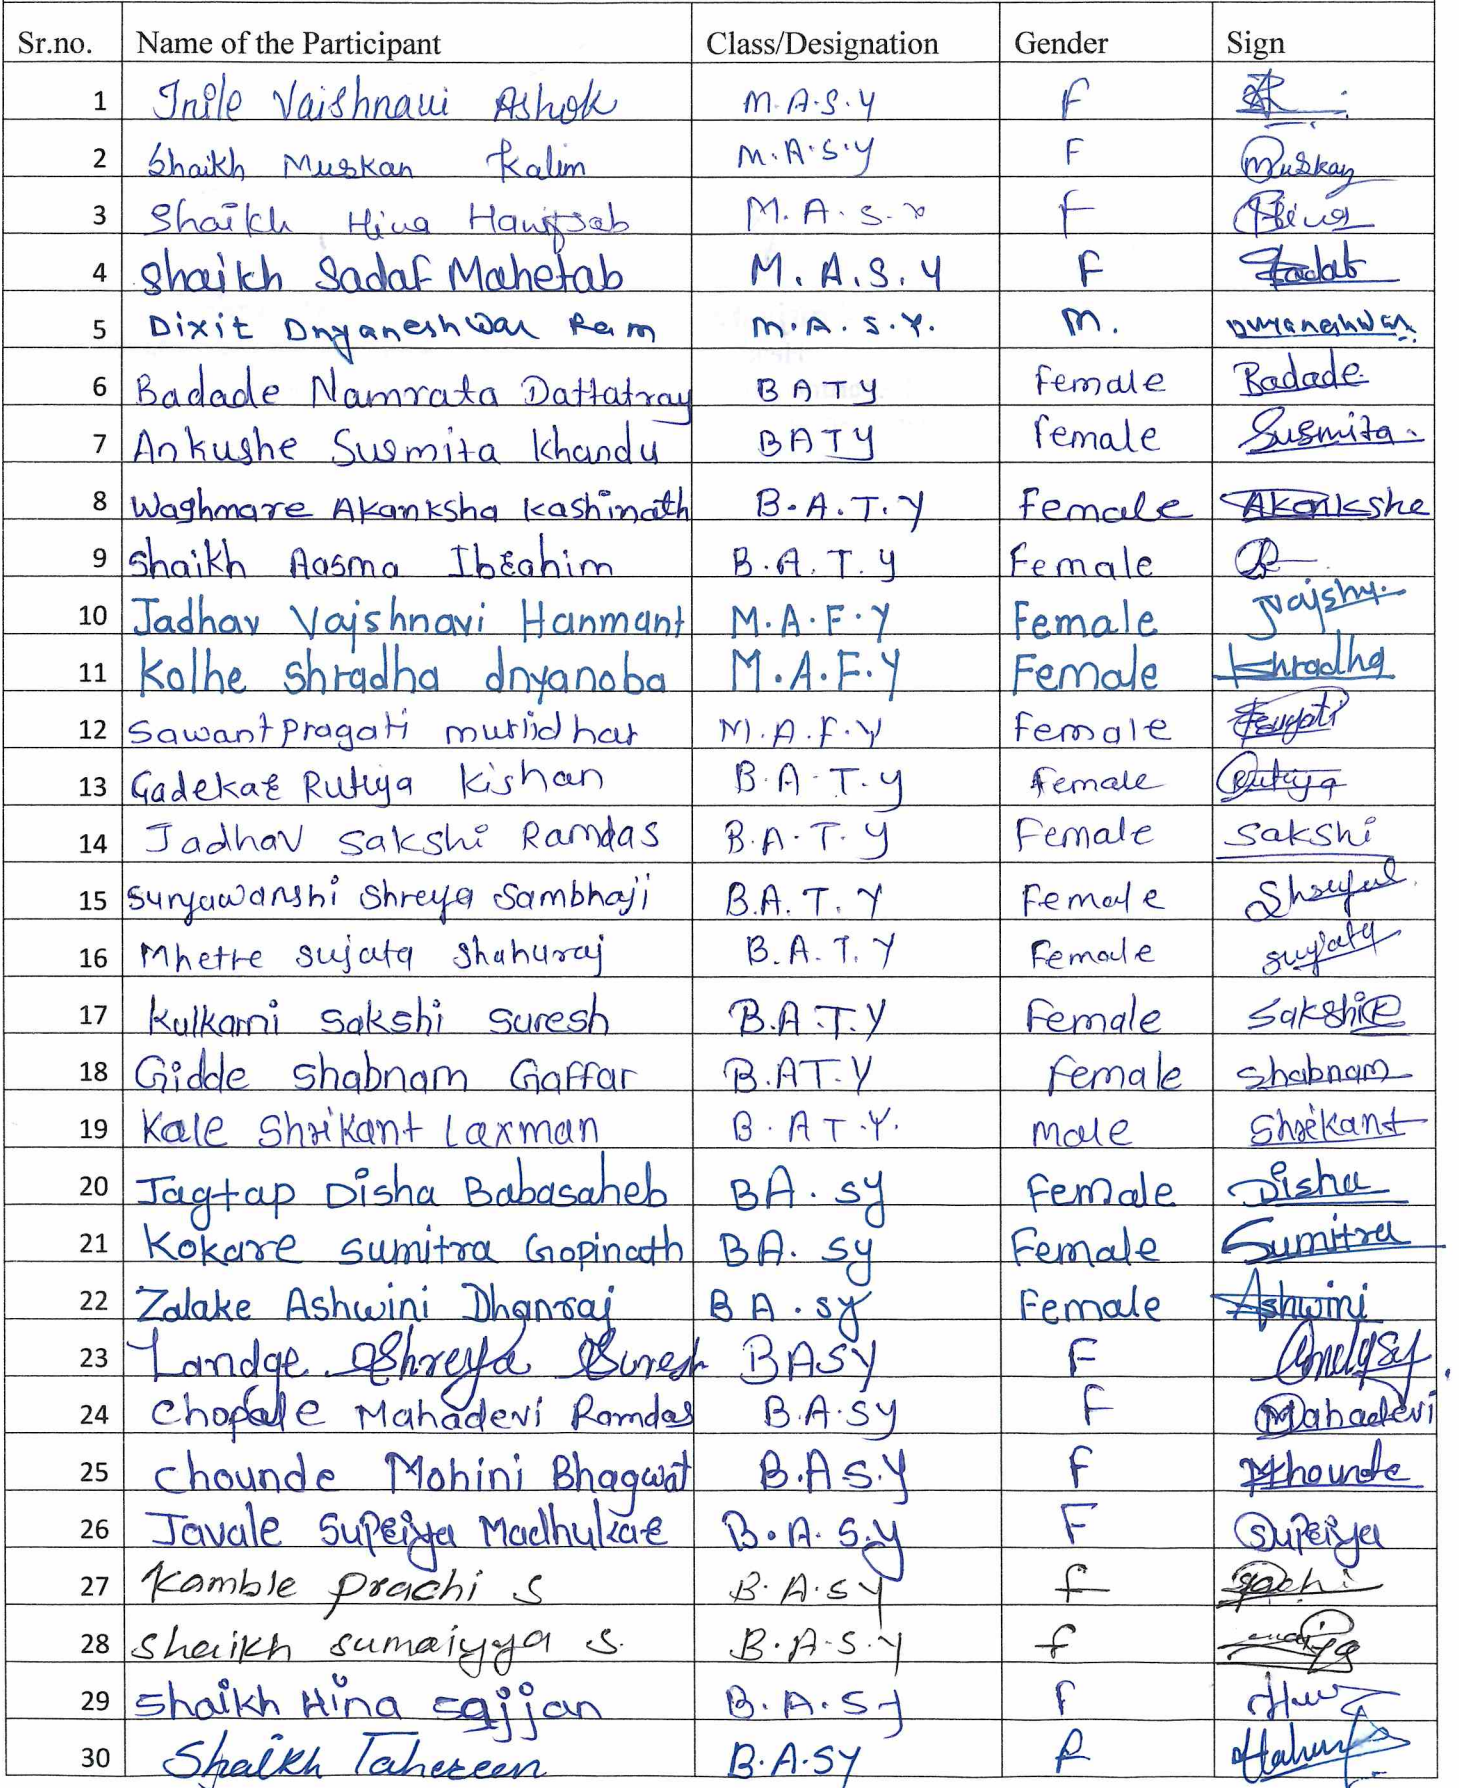 Sr.no. Name of the Participant Class/Designation Gender Sign
1 Inile Vaishnavi Ashok M.A.S.Y F
2 Shaikh Muskan Kalim M.A.S.Y F Muskan
3 Shaikh Hina Hanifsab M.A.S.Y F Hina
4 Shaikh Sadaf Mahetab M.A.S.Y F Sadaf
5 Dixit Dnyaneshwar Ram M.A.S.Y. M. Dnyaneshwar
6 Badade Namrata Dattatray BATY Female Badade
7 Ankushe Susmita Khandu BATY Female Susmita
8 Waghmare Akanksha Kashinath B.A.T.Y Female Akankshe
9 Shaikh Aasma Ibrahim B.A.T.Y Female
10 Jadhav Vaishnavi Hanmant M.A.F.Y Female
11 Kolhe Shradha dnyanoba M.A.F.Y Female Shradha
12 Sawant Pragati murlidhar M.A.F.Y Female Pragati
13 Gadekar Rutuja Kishan B.A.T.Y Female Rutuja
14 Jadhav Sakshi Ramdas B.A.T.Y Female Sakshi
15 Suryawanshi Shreya Sambhaji B.A.T.Y Female
16 Mhetre Sujata Shahuraj B.A.T.Y Female Sujata
17 Kulkarni Sakshi Suresh B.A.T.Y Female Sakshi
18 Gidde Shabnam Gaffar B.A.T.Y Female Shabnam
19 Kale Shrikant Laxman B.A T.Y. Male Shrikant
20 Jagtap Disha Babasaheb BA.SY Female Disha
21 Kokare Sumitra Gopinath BA.SY Female Sumitra
22 Zalake Ashwini Dhanraj BA.SY Female Ashwini
23 Landge Shreya Suresh BASY F
24 Chopale Mahadevi Ramdas B.A.SY F Mahadevi
25 Chounde Mohini Bhagwat B.A.S.Y F Mhounde
26 Javale Supriya Madhukar B.A.S.Y F Supriya
27 Kamble Prachi S B.A.SY F
28 Shaikh Sumaiyya S. B.A.S.Y F
29 Shaikh Hina Sajjan B.A.SY F
30 Shaikh Tahereen B.A.SY F